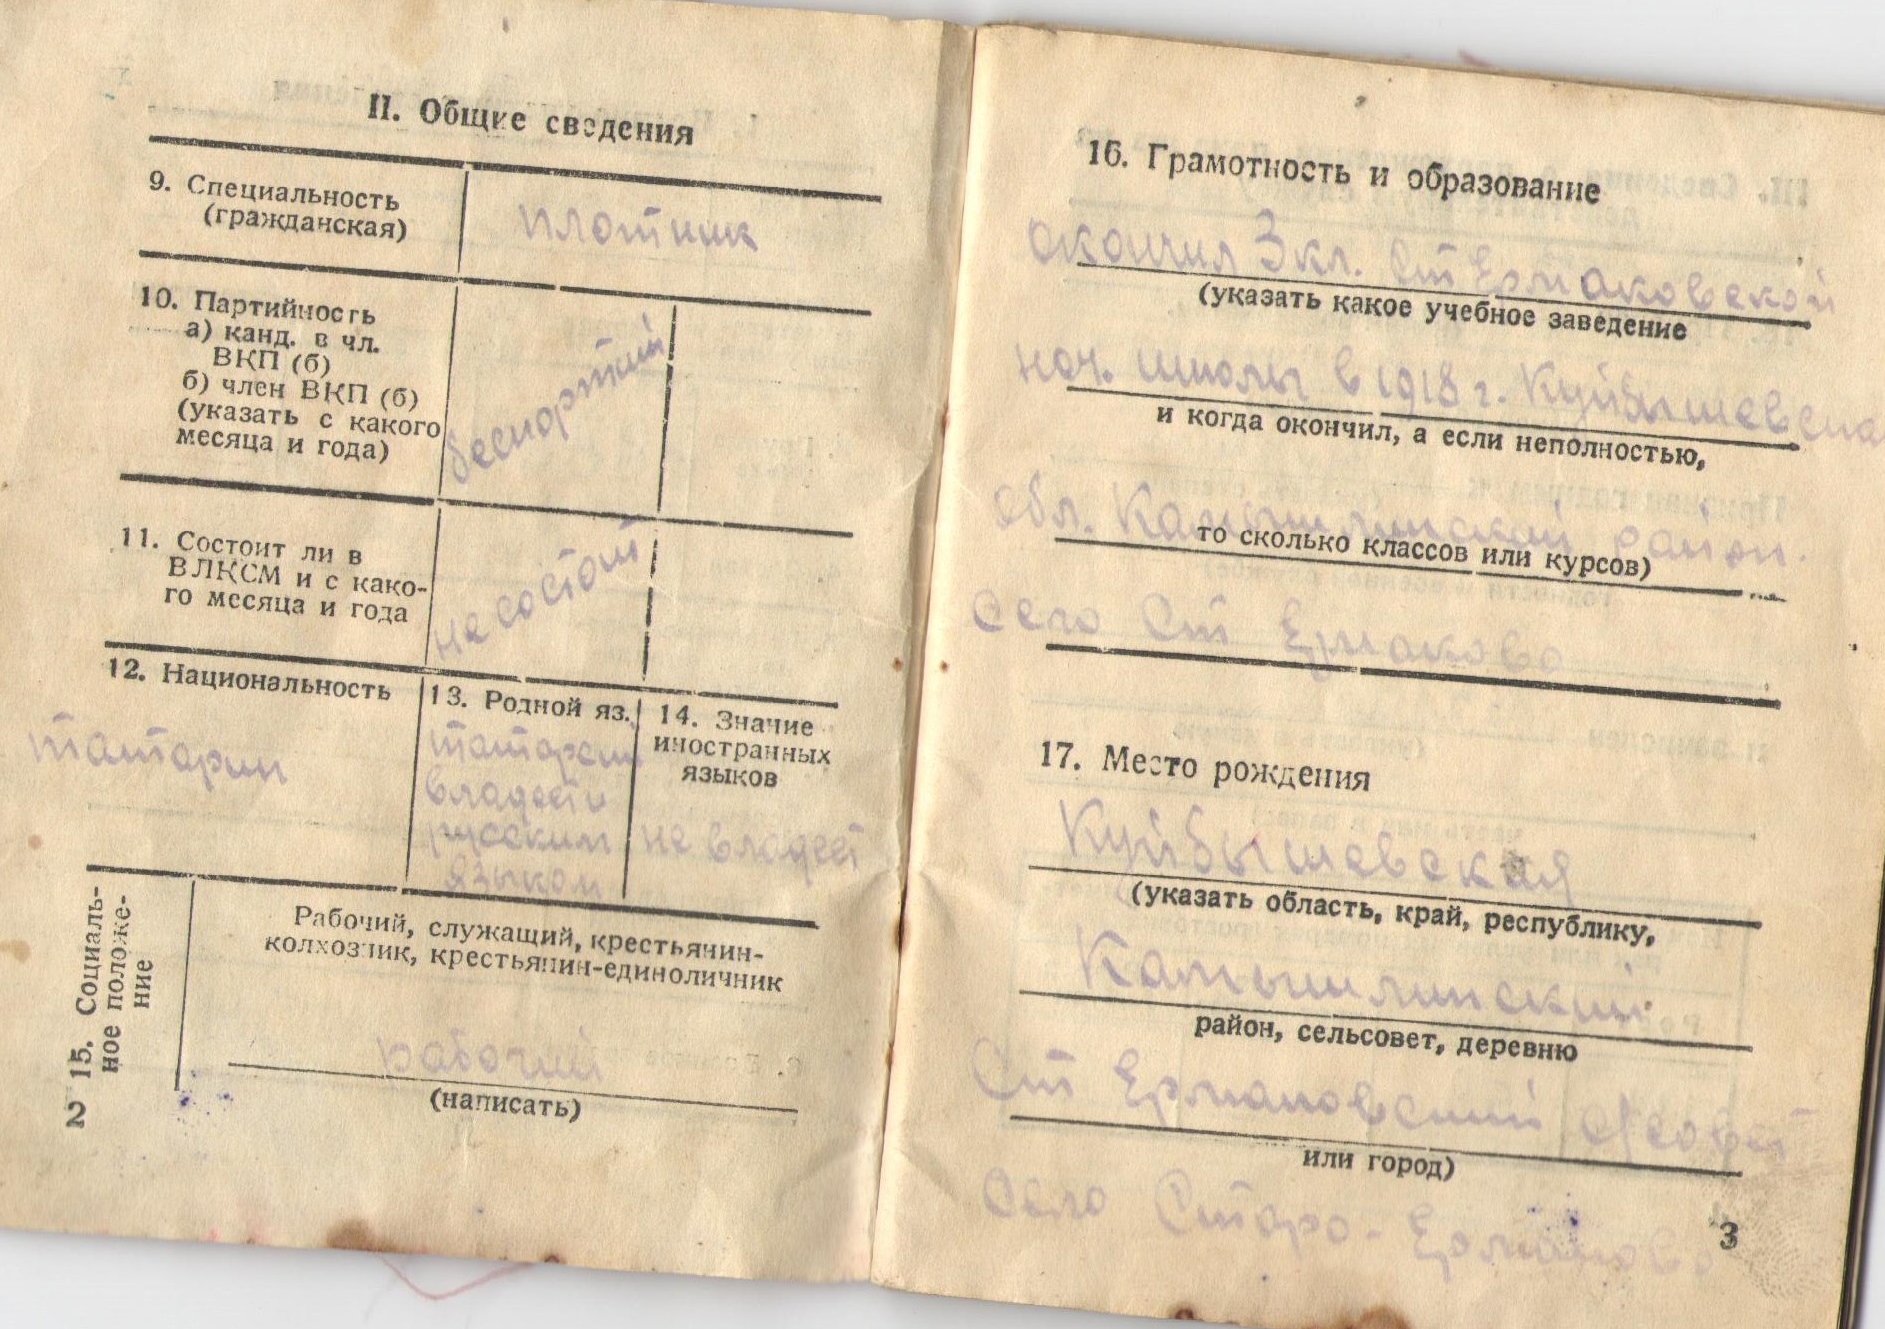 II. Общие сведения
9. Специальность
(гражданская)
плотник
10. Партийность
а) канд. в чл.
ВКП (б)
б) член ВКП (б)
(указать с какого
месяца и года)
беспартий
11. Состоит ли в
ВЛКСМ и с како-
го месяца и года
не состоит
12. Национальность
татарин
13. Родной яз.
татарский
владеет
русским
языком
14. Знание
иностранных
языков
не владеет
15. Социаль-
ное положе-
ние
Рабочий, служащий, крестьянин-
колхозник, крестьянин-единоличник
рабочий
(написать)
2
16. Грамотность и образование
окончил 3 кл. Ст Ермаковской
(указать какое учебное заведение
нач. школы в 1918 г. Куйбышевская
и когда окончил, а если неполностью,
обл. Камышлинский район.
то сколько классов или курсов)
Село Ст Ермаково
17. Место рождения
Куйбышевская
(указать область, край, республику,
Камышлинский
район, сельсовет, деревню
Ст Ермаковский с/совет
или город)
Село Старо-Ермаково
3